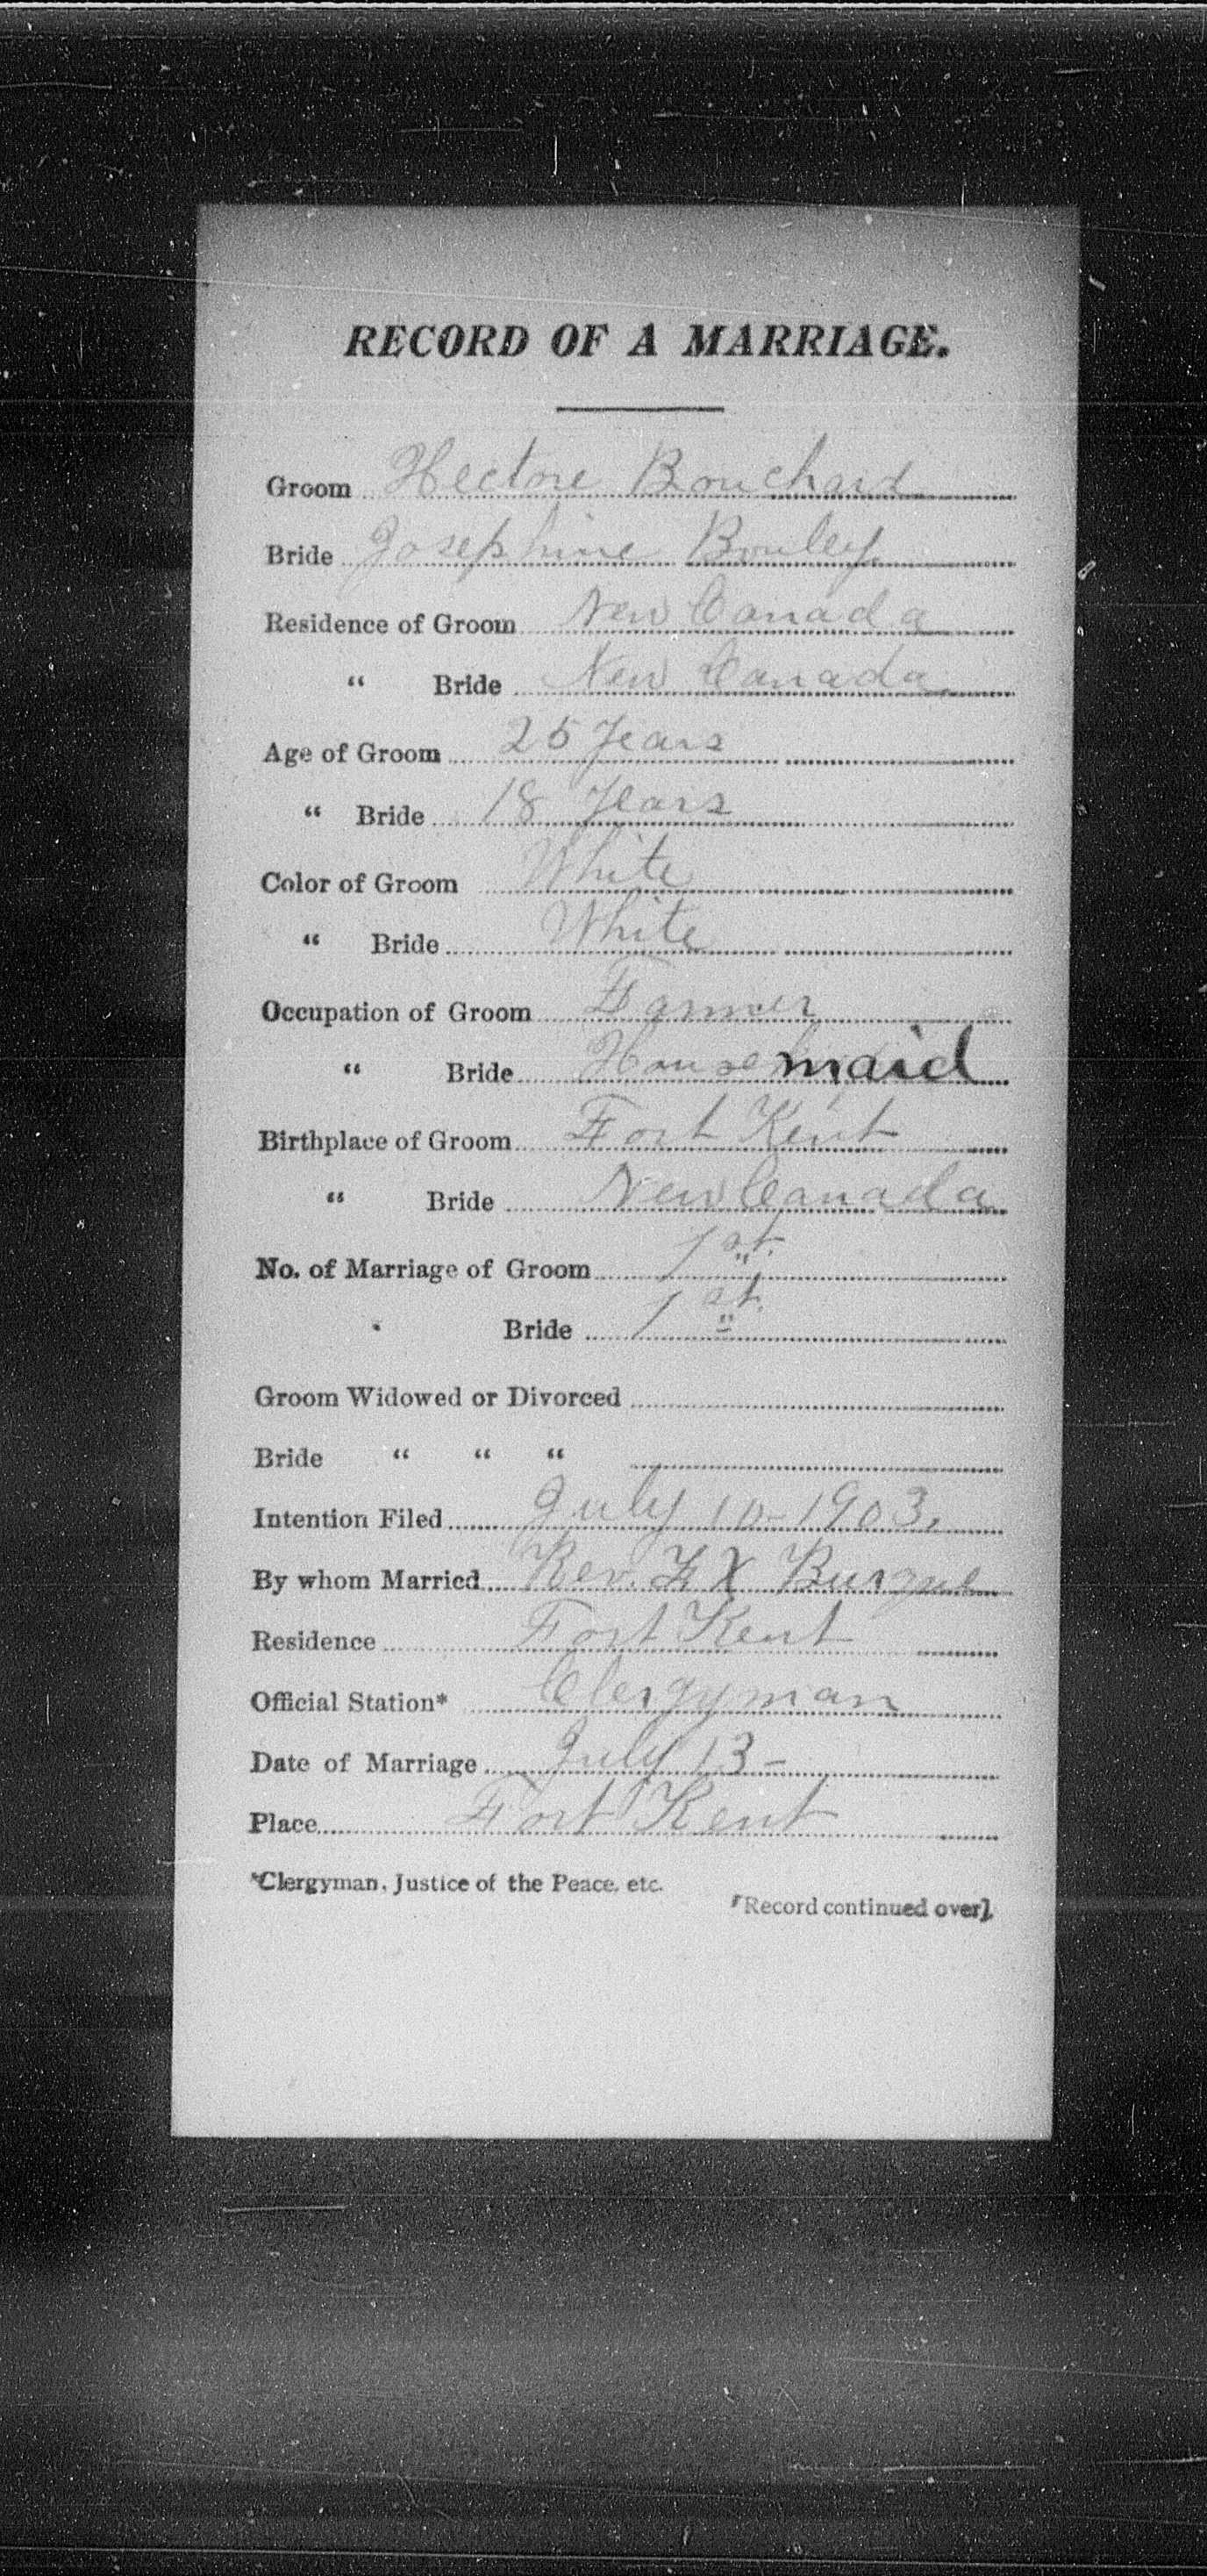 RECORD OF A MARRIAGE.
Groom Hectore Bouchard
Bride Josephine Bouley
Residence of Groom New Canada
" Bride New Canada
Age of Groom 25 Years
" Bride 18 Years
Color of Groom White
" Bride White
Occupation of Groom Farmer
" Bride Housemaid
Birthplace of Groom Fort Kent
" Bride New Canada
No. of Marriage of Groom 1st.
Bride 1st.
Groom Widowed or Divorced
Bride " " "
Intention Filed July 10-1903.
By whom Married Rev. F X Burque
Residence Fort Kent
Official Station* Clergyman
Date of Marriage July 13-
Place Fort Kent
*Clergyman, Justice of the Peace, etc.
[Record continued over].